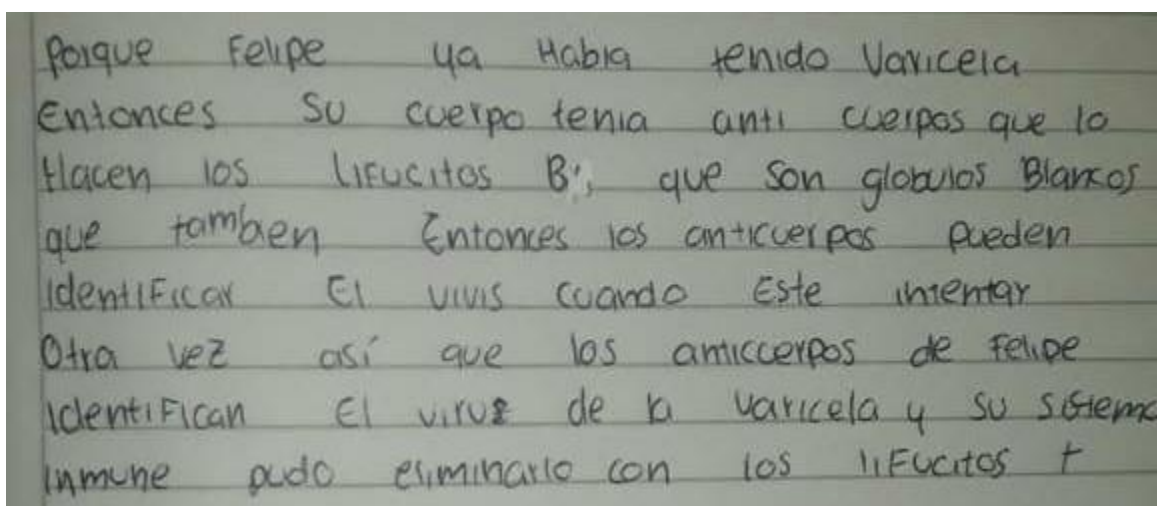 Porque Felipe ya Habia tenido Varicela
Entonces su cuerpo tenia anti cuerpos que lo
Hacen los lifucitos B, que son globulos Blancos
que tambien Entonces los anticuerpos pueden
identificar El virus cuando Este intentar
Otra vez así que los anticcerpos de Felipe
identifican El virus de la varicela y su sistema
inmune pudo eliminarlo con los lifucitos t